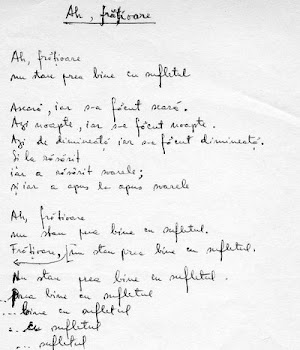 Ah, frățioare
Ah, frățioare
nu stau prea bine cu sufletul
Aseară, iar s-a făcut seară.
Azi noapte, iar s-a făcut noapte.
Azi de dimineață iar s-a făcut dimineață.
Și la răsărit
iar a răsărit soarele;
și iar a apus la apus soarele
Ah, frățioare
nu stau prea bine cu sufletul.
Frățioare, nu stau prea bine cu sufletul.
Nu stau prea bine cu sufletul.
Prea bine cu sufletul
... bine cu sufletul
... cu sufletul
... sufletul